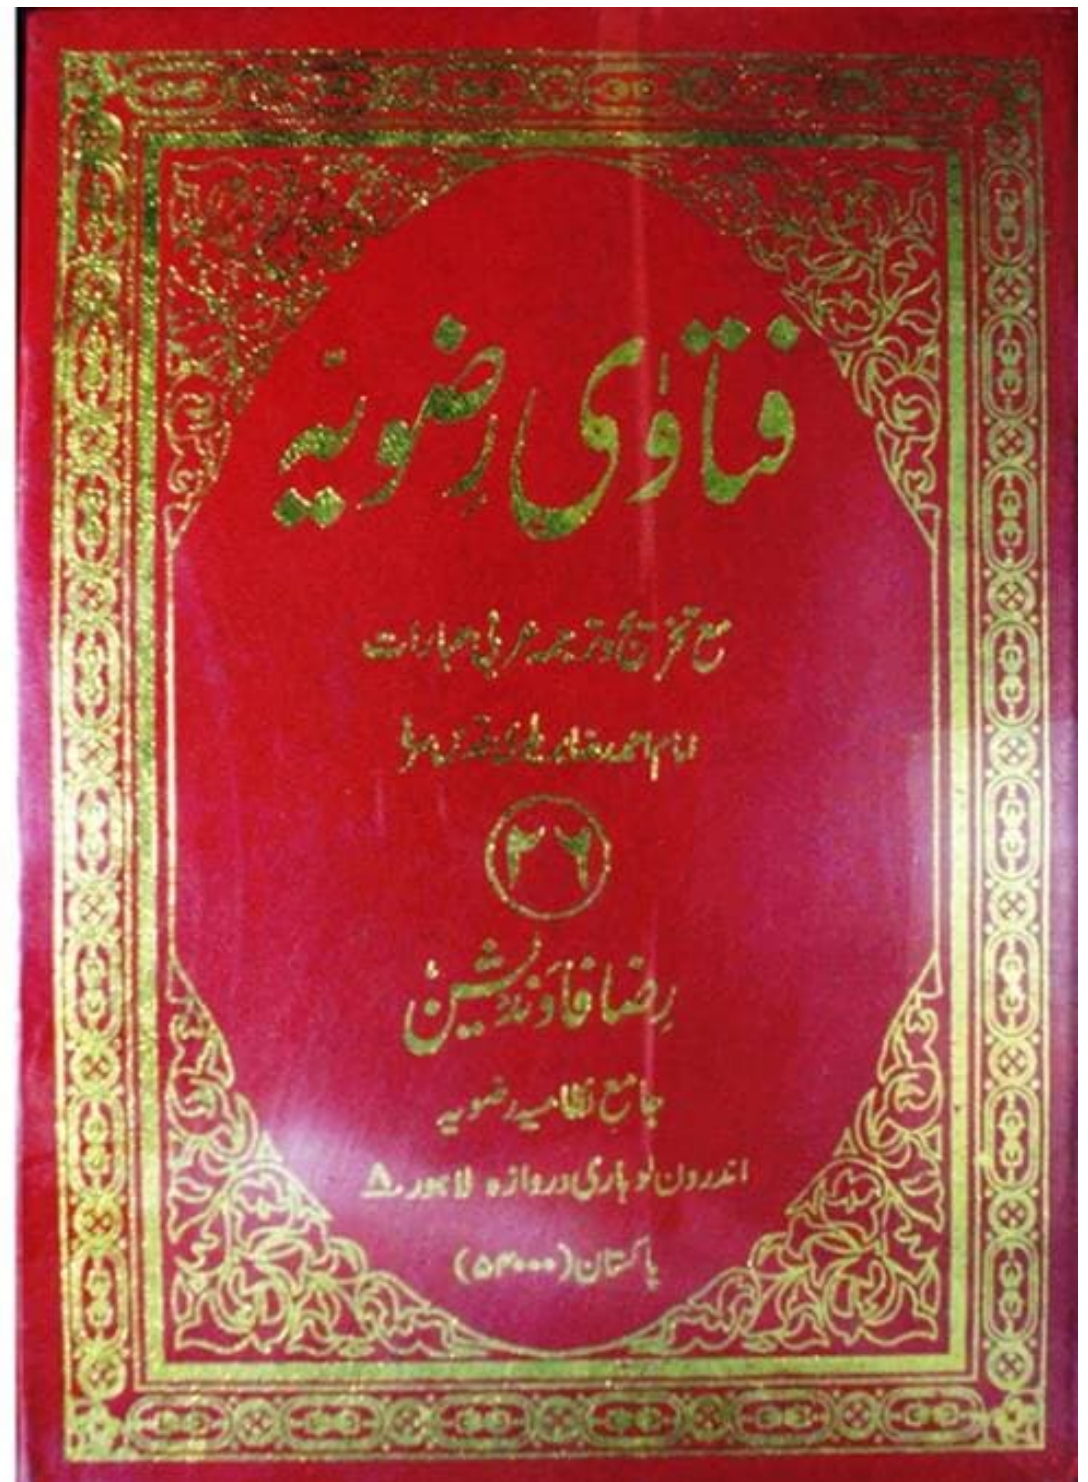 فتاوٰی رِضویّہ
مع تخریج و ترجمہ عربی عبارات
امام احمد رضا بریلوی قدس سرہ
۲۶
رِضا فاؤنڈیشن
جامع نظامیہ رضویہ
اندرون لوہاری دروازہ لاہور ۸
پاکستان (۵۴۰۰۰)